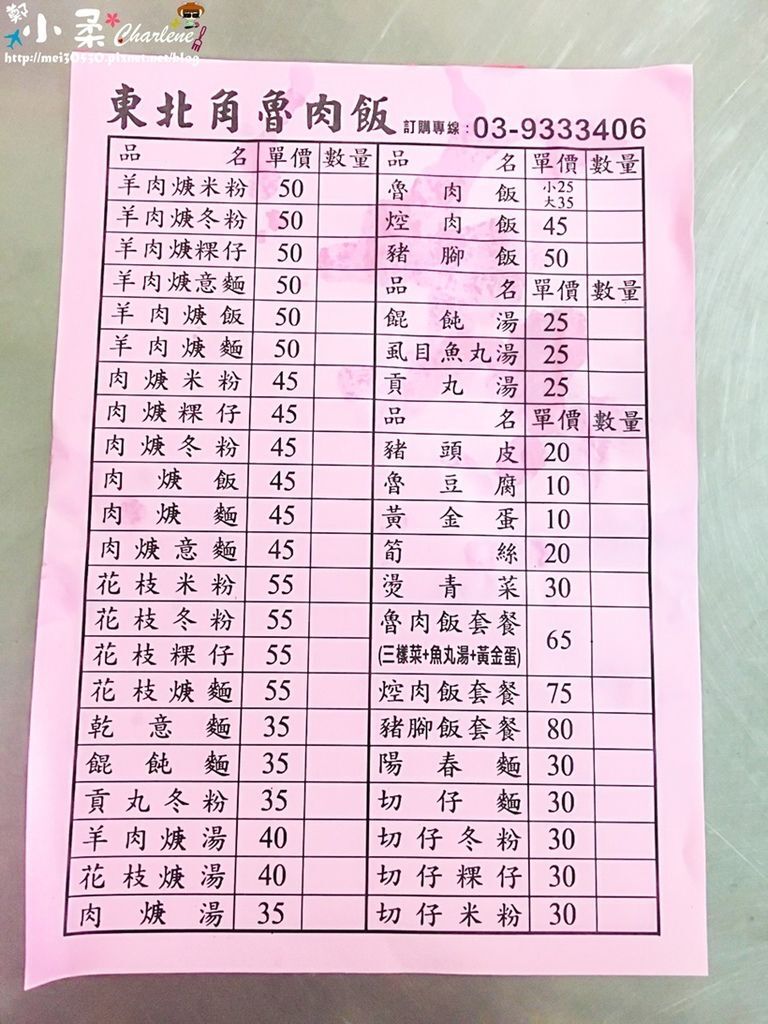 鄭小柔 Charlene
http://mei30530.pixnet.net/blog
東北角魯肉飯 訂購專線:03-9333406
品名 單價 數量
羊肉焿米粉 50
羊肉焿冬粉 50
羊肉焿粿仔 50
羊肉焿意麵 50
羊肉焿飯 50
羊肉焿麵 50
肉焿米粉 45
肉焿粿仔 45
肉焿冬粉 45
肉焿飯 45
肉焿麵 45
肉焿意麵 45
花枝米粉 55
花枝冬粉 55
花枝粿仔 55
花枝焿麵 55
乾意麵 35
餛飩麵 35
貢丸冬粉 35
羊肉焿湯 40
花枝焿湯 40
肉焿湯 35
品名 單價 數量
魯肉飯 小25
大35
焢肉飯 45
豬腳飯 50
品名 單價 數量
餛飩湯 25
虱目魚丸湯 25
貢丸湯 25
品名 單價 數量
豬頭皮 20
魯豆腐 10
黃金蛋 10
筍絲 20
燙青菜 30
魯肉飯套餐 65
(三樣菜+魚丸湯+黃金蛋)
焢肉飯套餐 75
豬腳飯套餐 80
陽春麵 30
切仔麵 30
切仔冬粉 30
切仔粿仔 30
切仔米粉 30